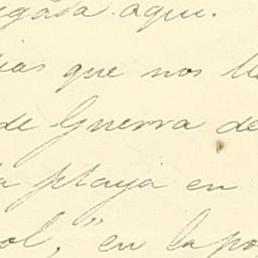 legada aqui.
ias que nos ll
de Guerra de
a playa en
ol," en la po